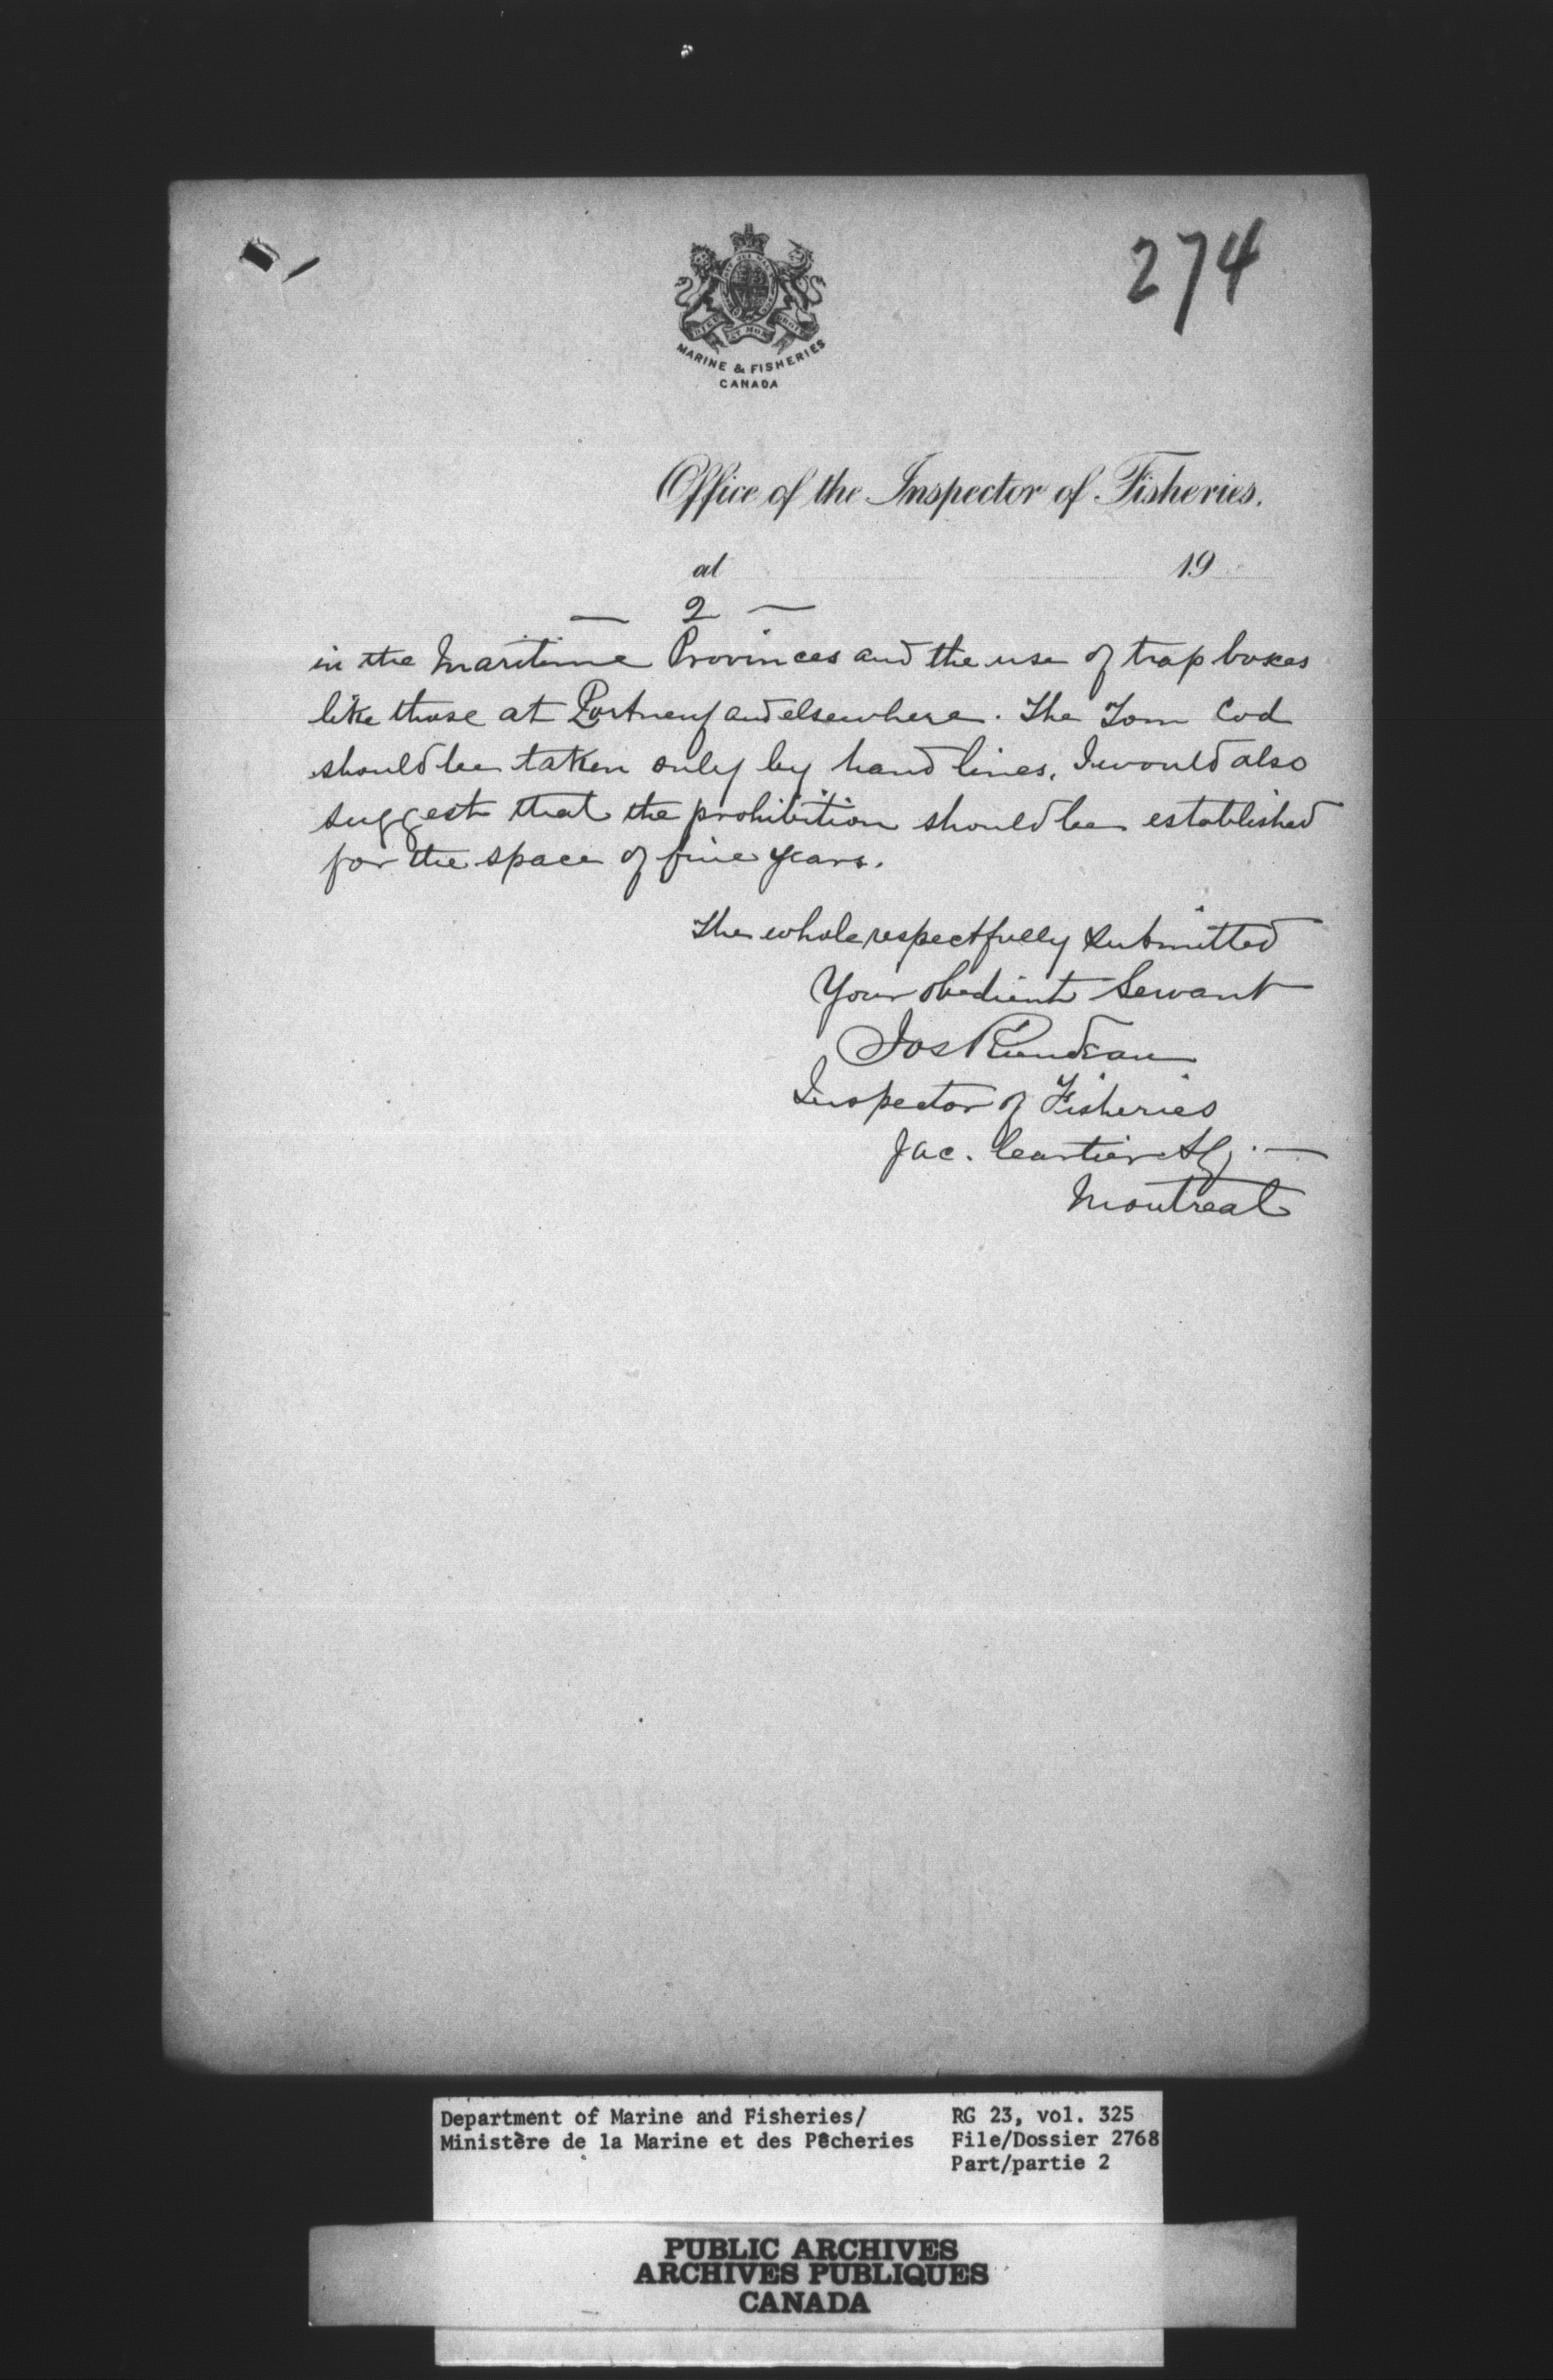 274
DIEU ET MON DROIT
MARINE & FISHERIES
CANADA
Office of the Inspector of Fisheries.
at 19
— 2 —
in the Maritime Provinces and the use of trap boxes
like those at Portneuf and elsewhere. The Tom Cod
should be taken only by hand lines. I would also
suggest that the prohibition should be established
for the space of five years.
The whole respectfully submitted
Your obedient Servant
Jos Riendeau
Inspector of Fisheries
Jac. Cartier Sq. —
Montreal
Department of Marine and Fisheries/ RG 23, vol. 325
Ministère de la Marine et des Pêcheries File/Dossier 2768
Part/partie 2
PUBLIC ARCHIVES
ARCHIVES PUBLIQUES
CANADA